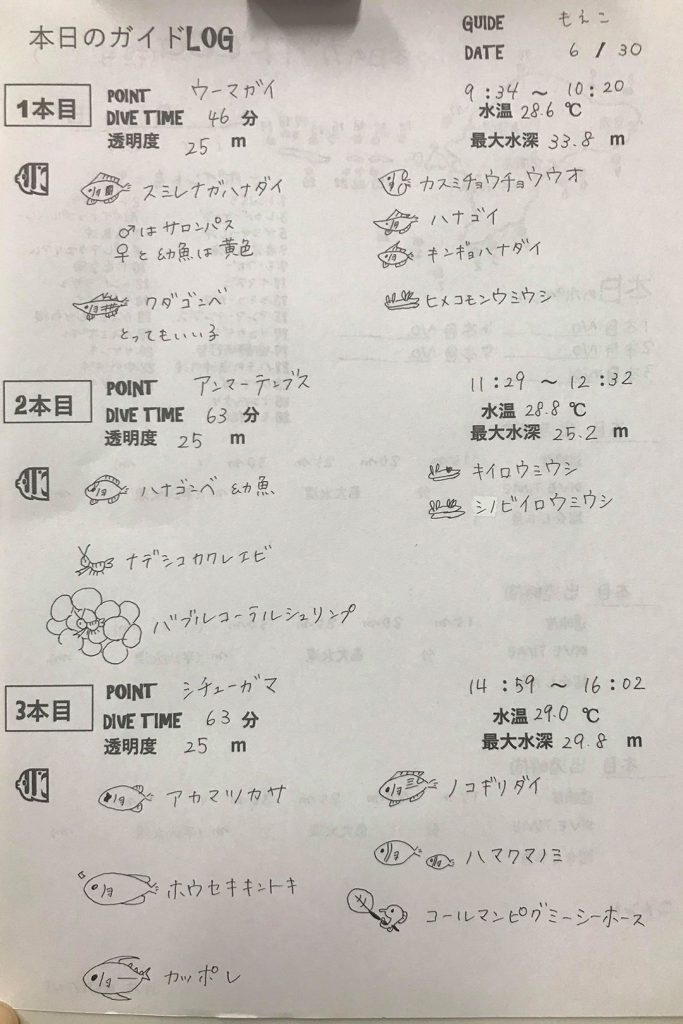 本日のガイドLOG
GUIDE もえこ
DATE 6 / 30
1本目
POINT ウーマガイ
DIVE TIME 46 分
透明度 25 m
9:34 ～ 10:20
水温 28.6 ℃
最大水深 33.8 m
スミレナガハナダイ
♂はサロンパス
♀と幼魚は黄色
クダゴンベ
とってもいい子
カスミチョウチョウウオ
ハナゴイ
キンギョハナダイ
ヒメコモンウミウシ
2本目
POINT アンマーテンブス
DIVE TIME 63 分
透明度 25 m
11:29 ～ 12:32
水温 28.8 ℃
最大水深 25.2 m
ハナゴンベ 幼魚
ナデシコカクレエビ
バブルコーラルシュリンプ
キイロウミウシ
シノビイロウミウシ
3本目
POINT シチューガマ
DIVE TIME 63 分
透明度 25 m
14:59 ～ 16:02
水温 29.0 ℃
最大水深 29.8 m
アカマツカサ
ホウセキキントキ
カッポレ
ノコギリダイ
ハマクマノミ
コールマンピグミーシーホース